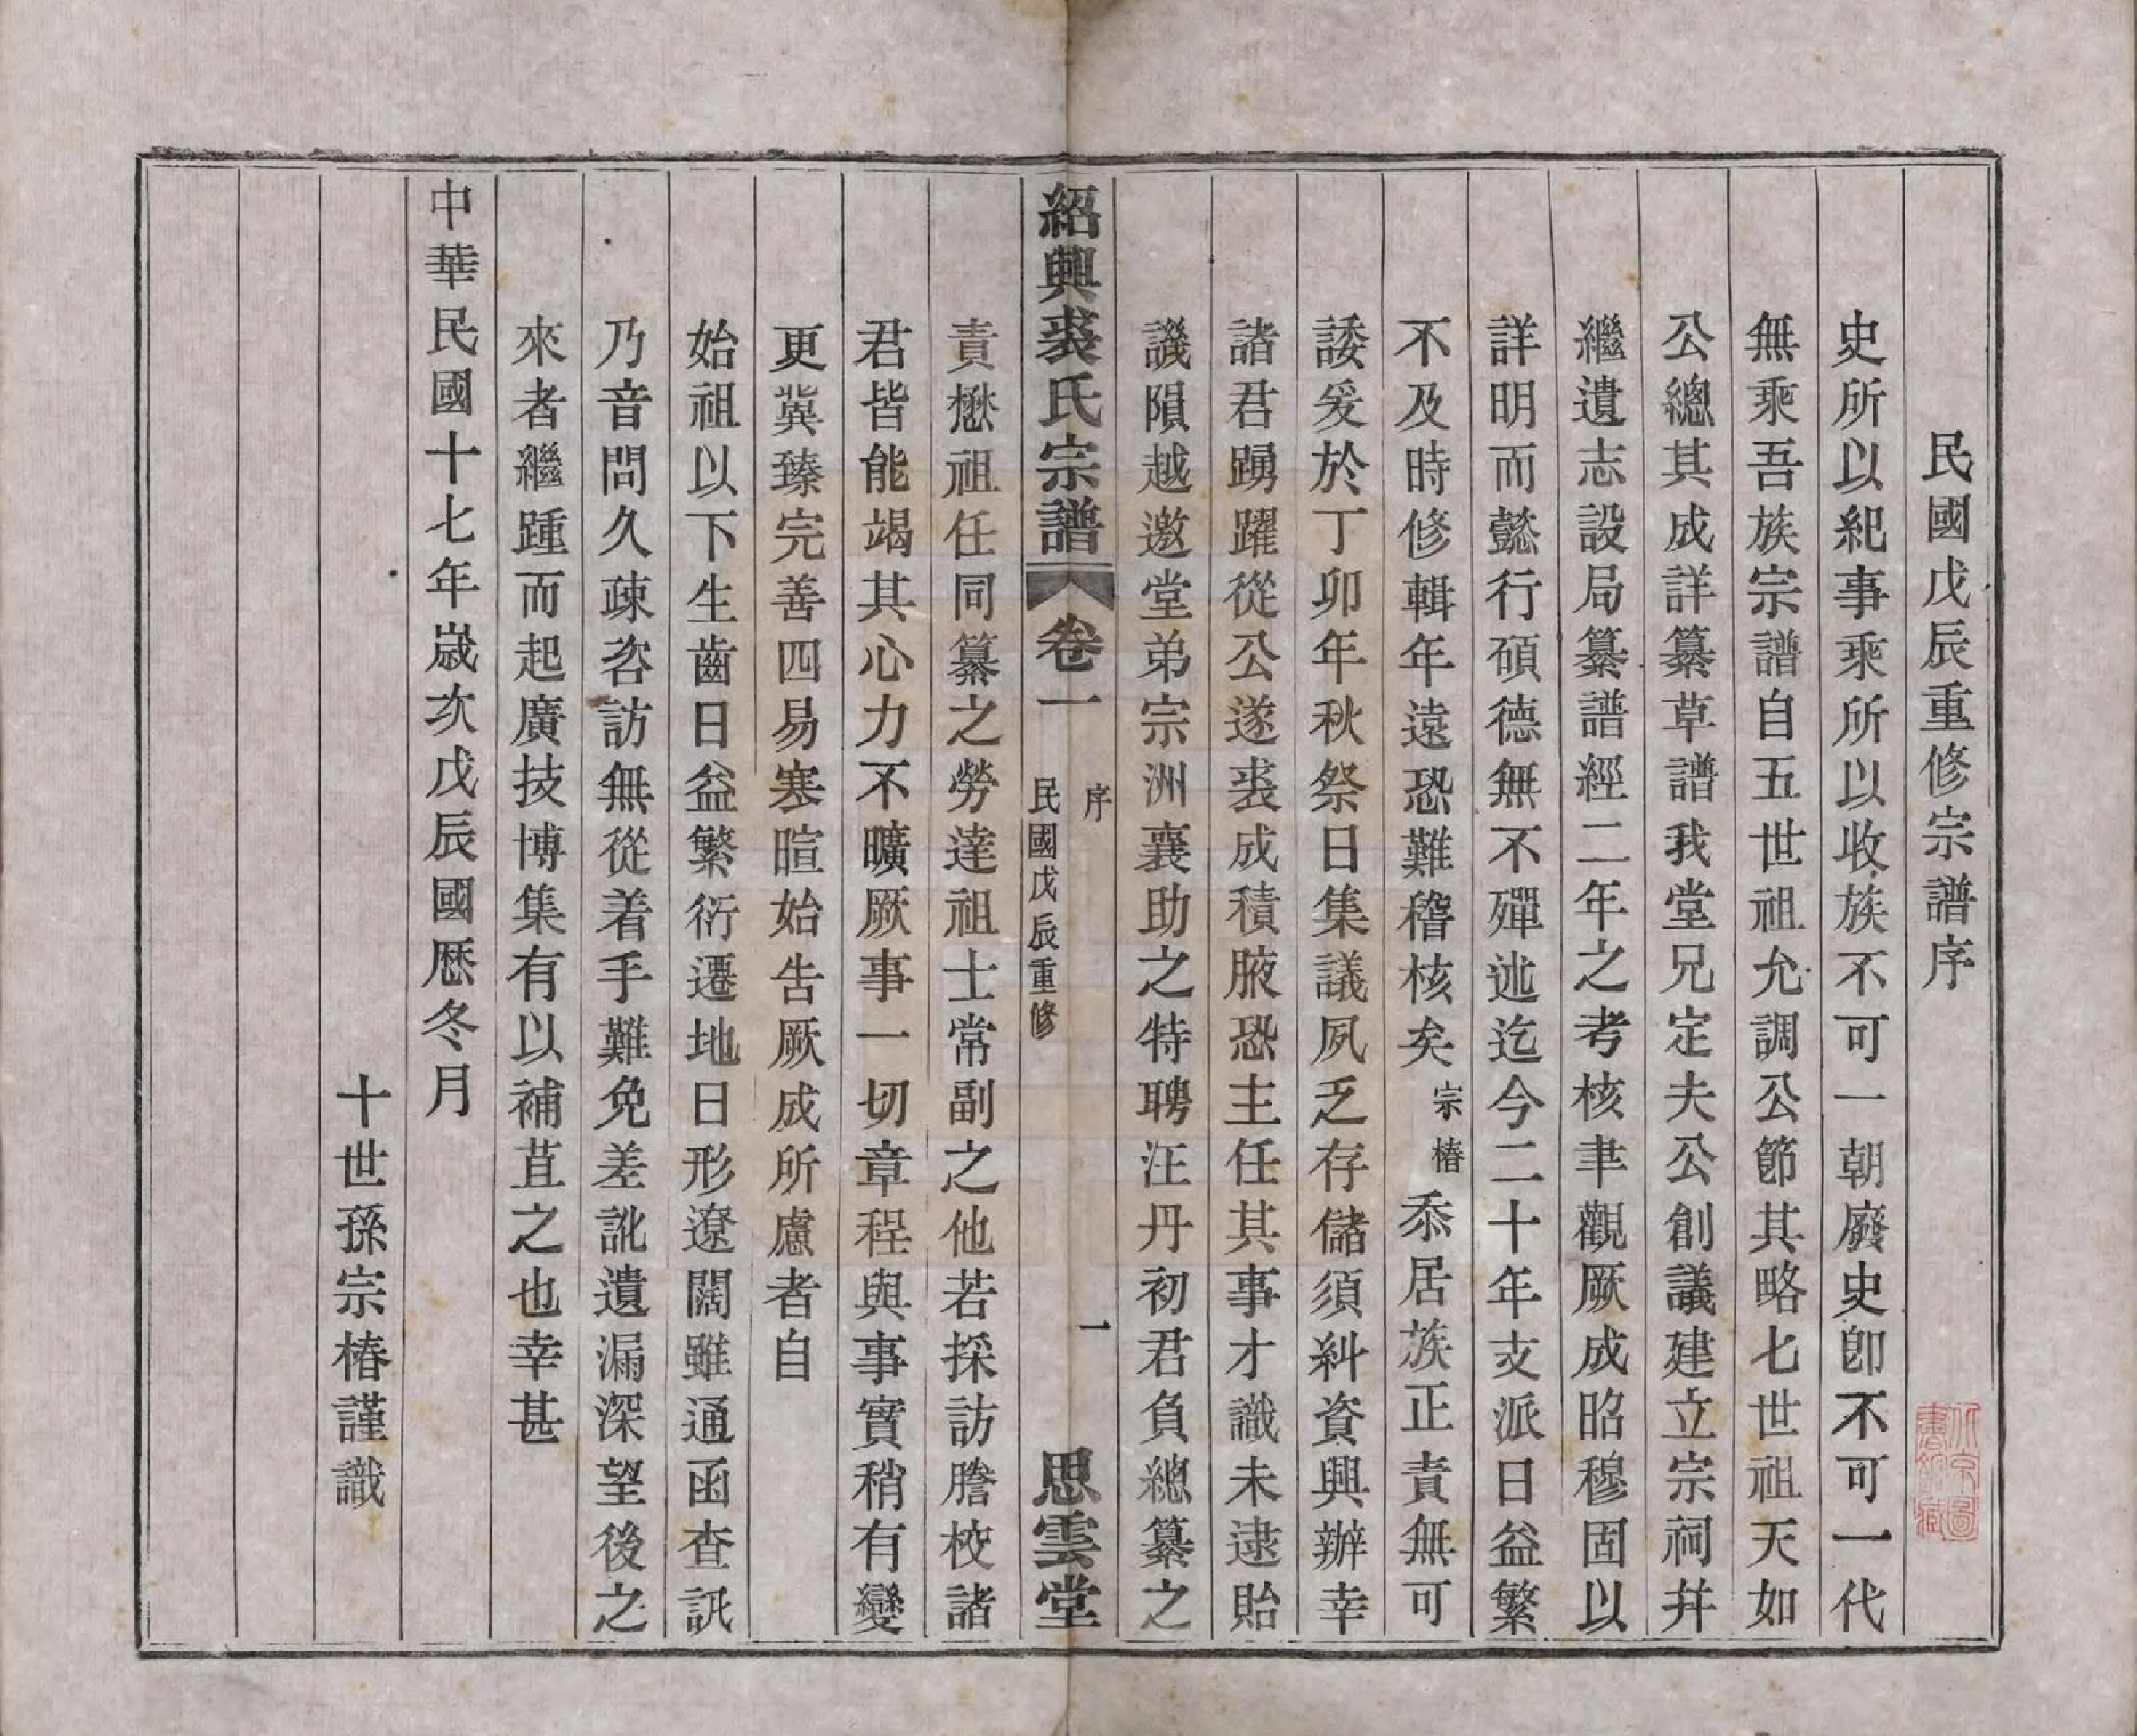 民國戊辰重修宗譜序
史所以紀事乘所以收族不可一朝廢史卽不可一代
無乘吾族宗譜自五世祖允調公節其略七世祖天如
公總其成詳纂草譜我堂兄定夫公創議建立宗祠并
繼遺志設局纂譜經二年之考核聿觀厥成昭穆固以
詳明而懿行碩德無不殫述迄今二十年支派日益繁
不及時修輯年遠恐難稽核矣宗椿忝居族正責無可
諉爰於丁卯年秋祭日集議夙乏存儲須糾資興辦幸
諸君踴躍從公遂裘成積腋恐主任其事才識未逮貽
譏隕越邀堂弟宗洲襄助之特聘汪丹初君負總纂之
紹興裘氏宗譜 卷一 序 民國戊辰重修 一 思雲堂
責懋祖任同纂之勞達祖士常副之他若採訪謄校諸
君皆能竭其心力不曠厥事一切章程與事實稍有變
更冀臻完善四易寒暄始告厥成所慮者自
始祖以下生齒日益繁衍遷地日形遼闊雖通函查訊
乃音問久疎咨訪無從着手難免差訛遺漏深望後之
來者繼踵而起廣技博集有以補苴之也幸甚
中華民國十七年歲次戊辰國曆冬月
十世孫宗椿謹識